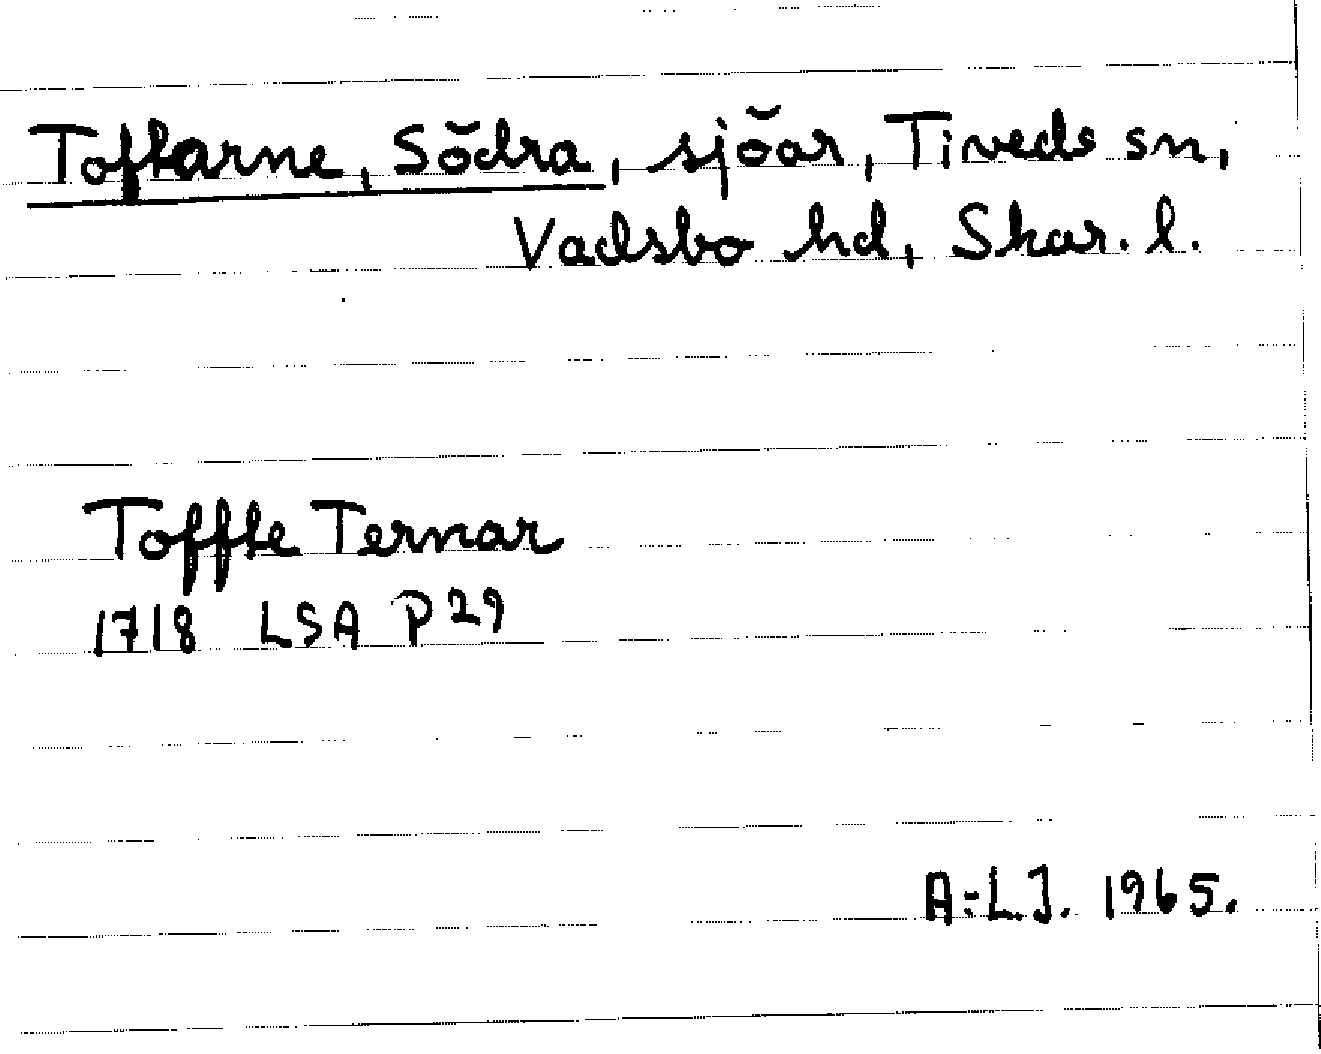 Toftarne, Södra, sjöar, Tiveds sn,
Vadsbo hd, Skar. l.
Toffte Ternar
1718 LSA P 29
A:L.J. 1965.